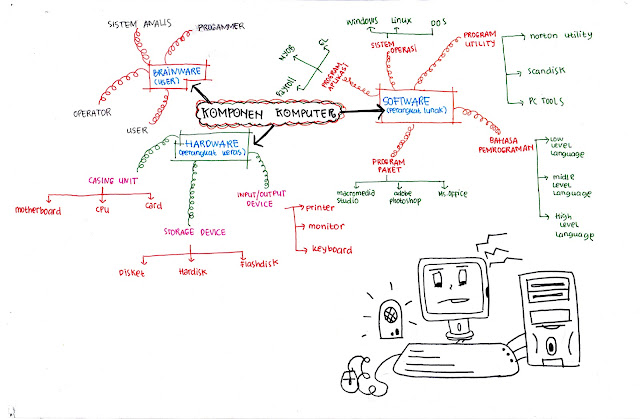 SISTEM ANALIS
PROGAMMER
BRAINWARE
(USER)
OPERATOR
USER
KOMPONEN KOMPUTER
HARDWARE
(perangkat keras)
CASING UNIT
motherboard
CPU
card
STORAGE DEVICE
Disket
Hardisk
Flashdisk
INPUT/OUTPUT
DEVICE
printer
monitor
keyboard
SOFTWARE
(perangkat lunak)
PROGRAM
APLIKASI
MYOB
GL
Payroll
SISTEM
OPERASI
Windows
Linux
DOS
PROGRAM
UTILITY
norton utility
scandisk
PC TOOLS
BAHASA
PEMROGRAMAN
Low
level
language
midle
level
language
High
level
language
PROGRAM
PAKET
macromedia
studio
adobe
photoshop
Ms. Office